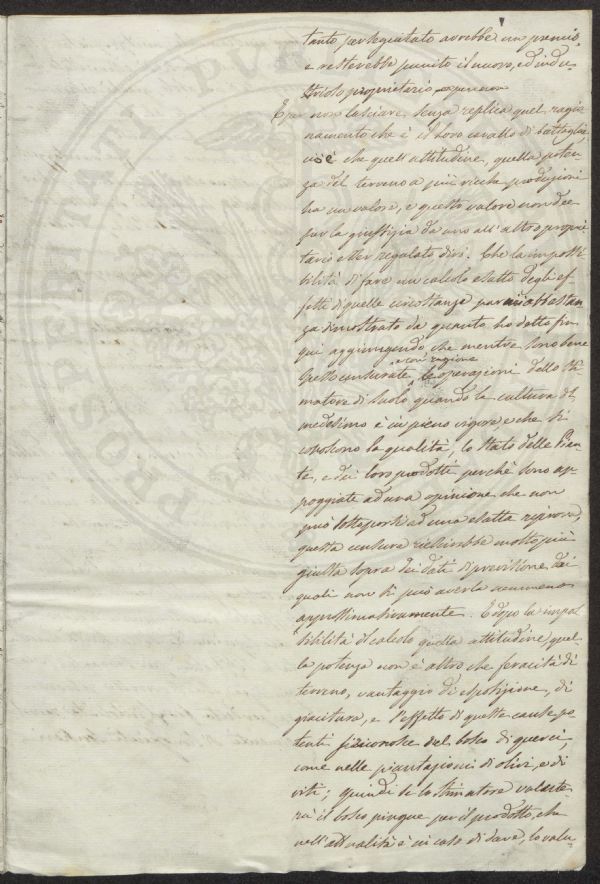 tanto perseguitato avrebbe un premio,
e resterebbe punito il nuovo, ed indu-
strioso proprietario
E per non lasciare senza replica quel ragio-
namento che è il loro cavallo di battaglia,
cioè che quell'attitudine, quella poten-
za del terreno a più ricche produzioni
ha un valore, e questo valore non dee
per la giustizia da uno all'altro proprie-
tario esser regalato dirò. Che la impossi-
bilità di fare un calcolo esatto degli ef-
fetti di quelle circostanze par mi abbastan-
za dimostrato da quanto ho detto fin
qui aggiungendo che mentre sono bene
spesso censurate, e con ragione le operazioni dello sti-
matore di suolo quando la cultura del
medesimo è in pieno vigore, e che si
conoscono la qualità, lo stato delle pian-
te, e dei loro prodotti perchè sono ap-
poggiate ad una opinione che non
può sottoporsi ad una esatta riprova,
questa censura riescirebbe molto più
giusta sopra dei dati di previsione dei
quali non si può averla nemmeno
approssimativamente. E dopo la impos-
sibilità del calcolo quella attitudine, quel-
la potenza non è altro che feracità di
terreno, vantaggio di esposizione, di
giacitura, e l'effetto di queste cause po-
tenti si riconosce del bosco di querci,
come nelle piantazioni di olivi, e di
viti; quindi se lo stimatore valute-
rà il bosco pingue per il prodotto, che
nell'attualità è in caso di dare, lo valu-